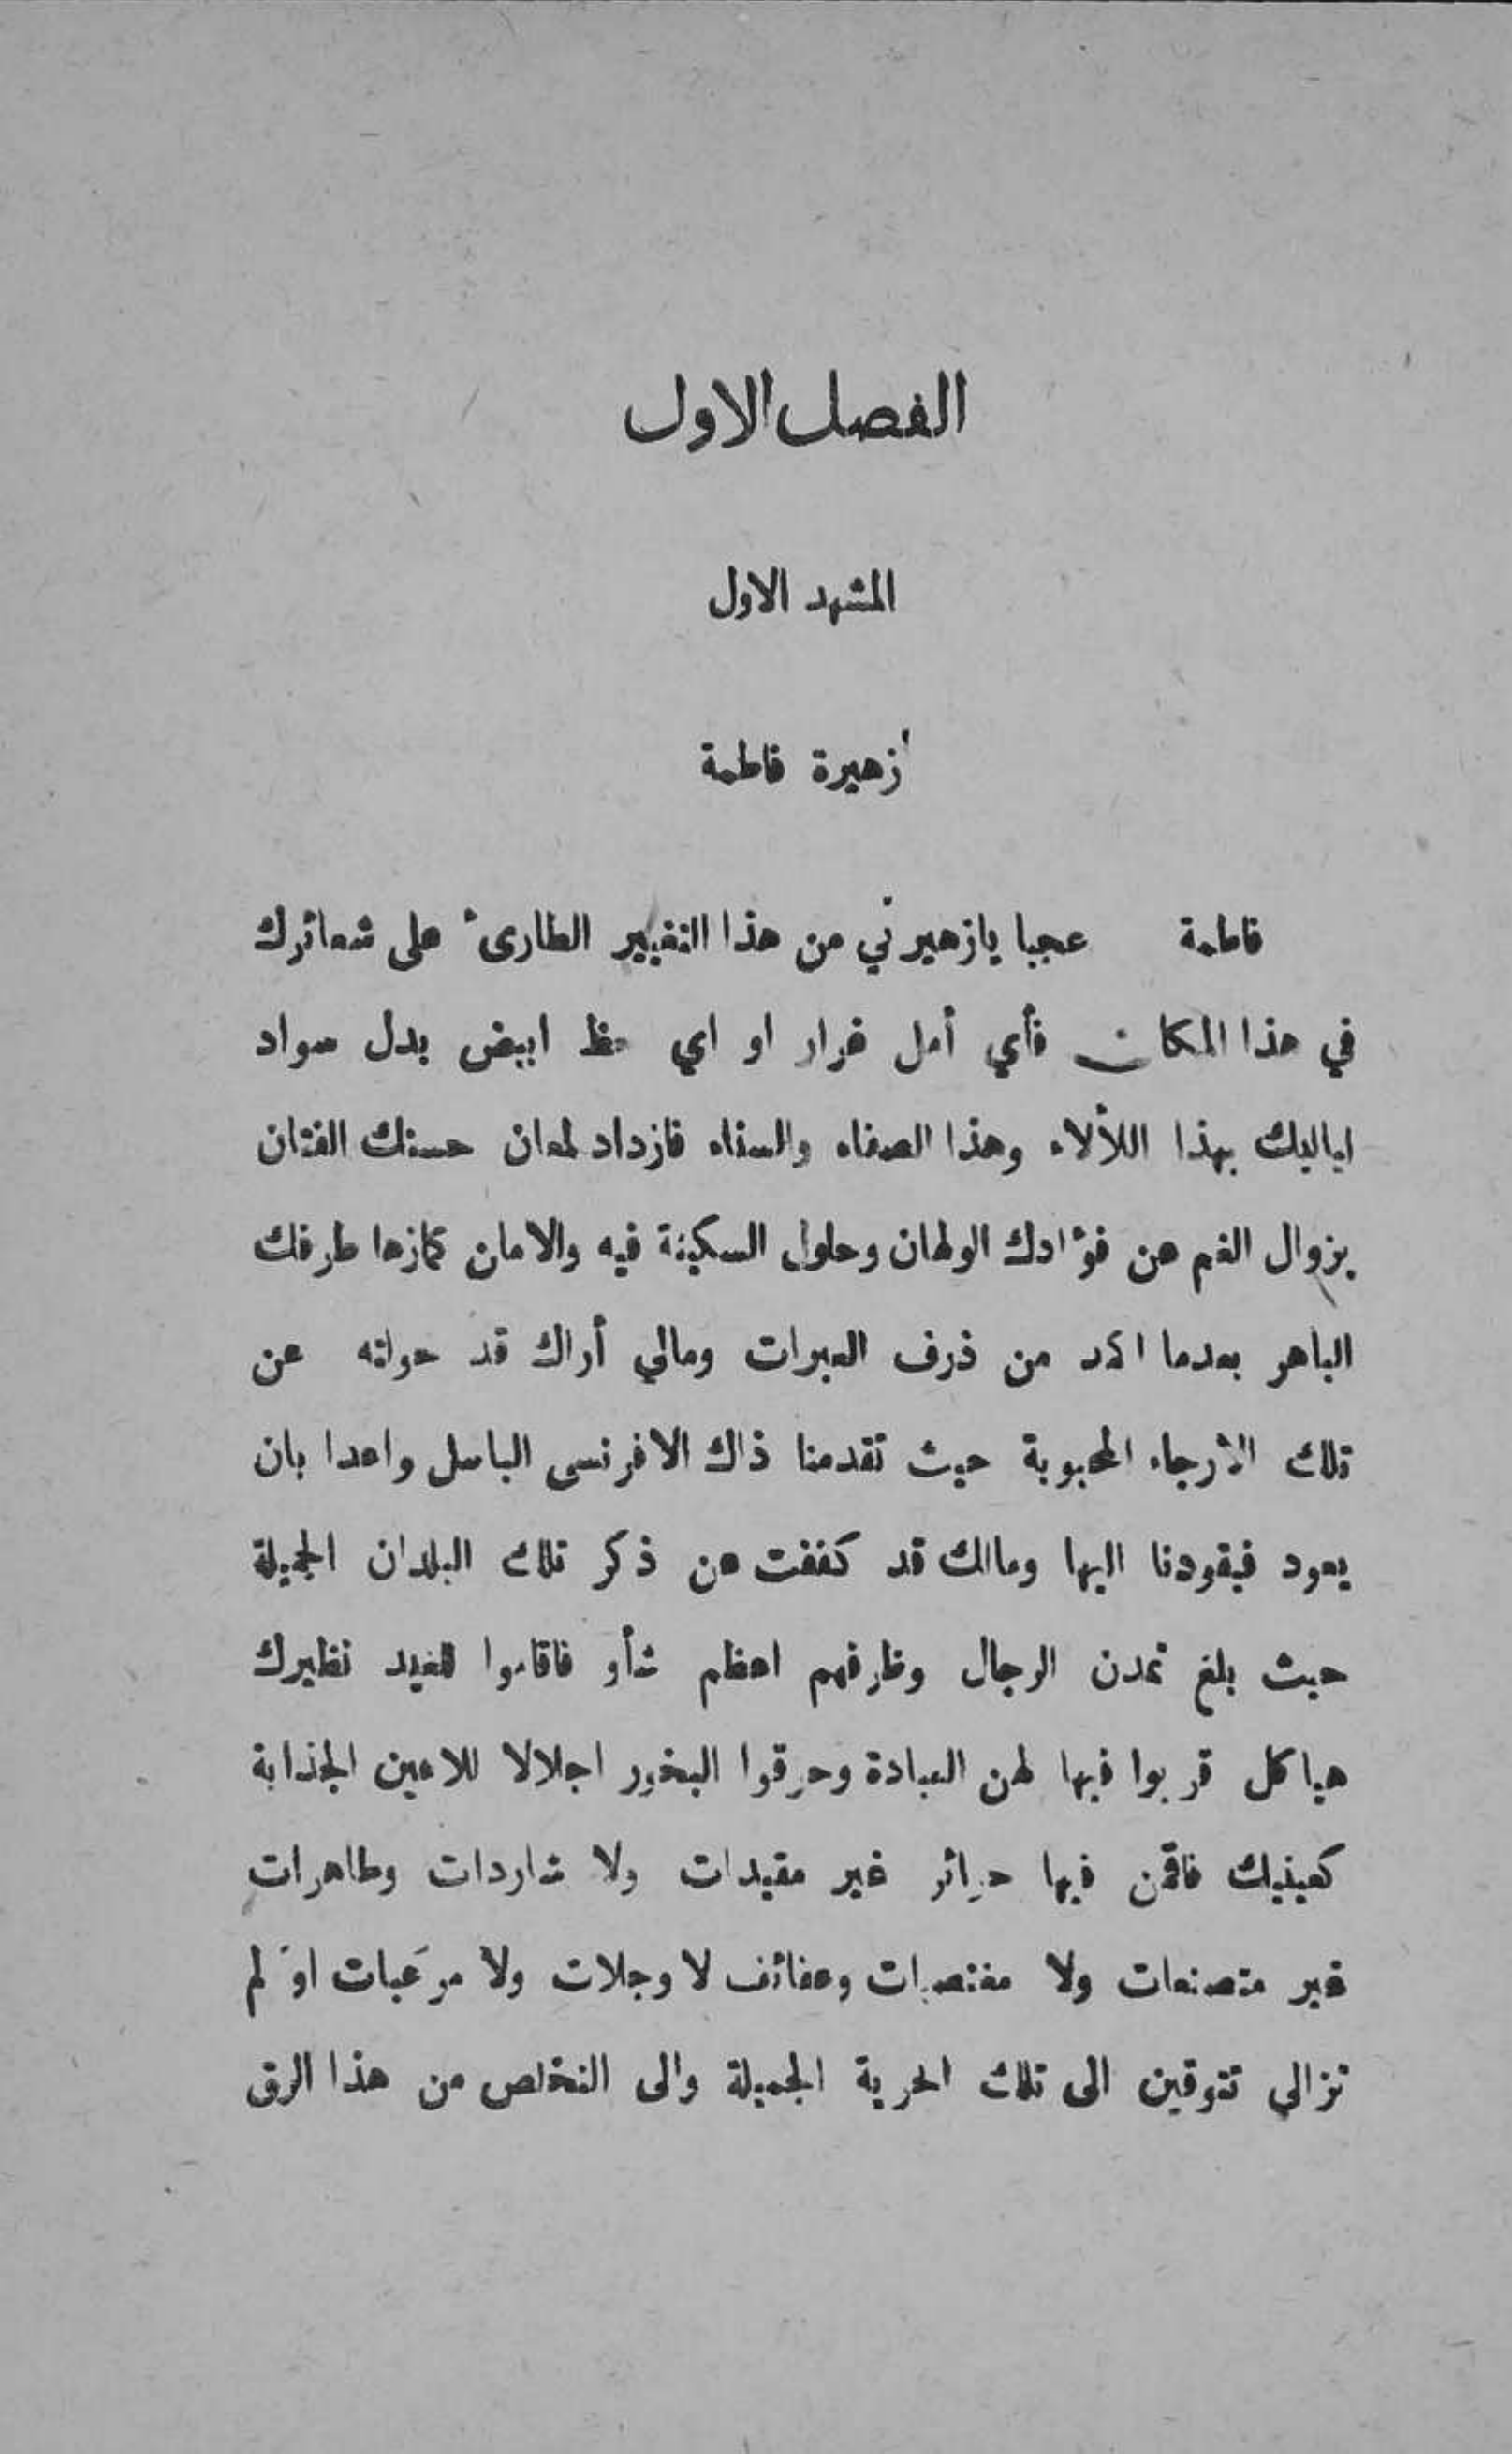 الفصل الاول
المشهد الاول
زهيرة فاطمة
فاطمة عجبا يازهيرتي من هذا التغيير الطارىء على شعائرك
في هذا المكان فأي أمل قرار او اي حظ ابيض بدل سواد
لياليك بهذا اللألاء وهذا الصفاء والسناء فازداد لمعان حسنك الفتان
بزوال الغم عن فؤادك الولهان وحلول السكينة فيه والامان طرفك
الباهر بعدما من ذرف العبرات ومالي أراك قد حولته عن
تلك الارجاء المحبوبة حيث تقدمنا ذاك الافرنسي الباسل واعدا بان
يعود فيقودنا اليها ومالك قد كففت عن ذكر تلك البلدان الجميلة
حيث بلغ تمدن الرجال وظرفهم اعظم شأو فاقاموا للغيد نظيرك
هياكل قربوا فيها لهن العبادة وحرقوا البخور اجلالا للاعين الجذابة
كعينيك فاقمن فيها حرائر غير مقيدات ولا شاردات وطاهرات
غير متصنعات ولا مغتصبات وعفائف لا وجلات ولا مرعبات اوَ لم
تزالي تتوقين الى تلك الحرية الجميلة والى التخلص من هذا الرق